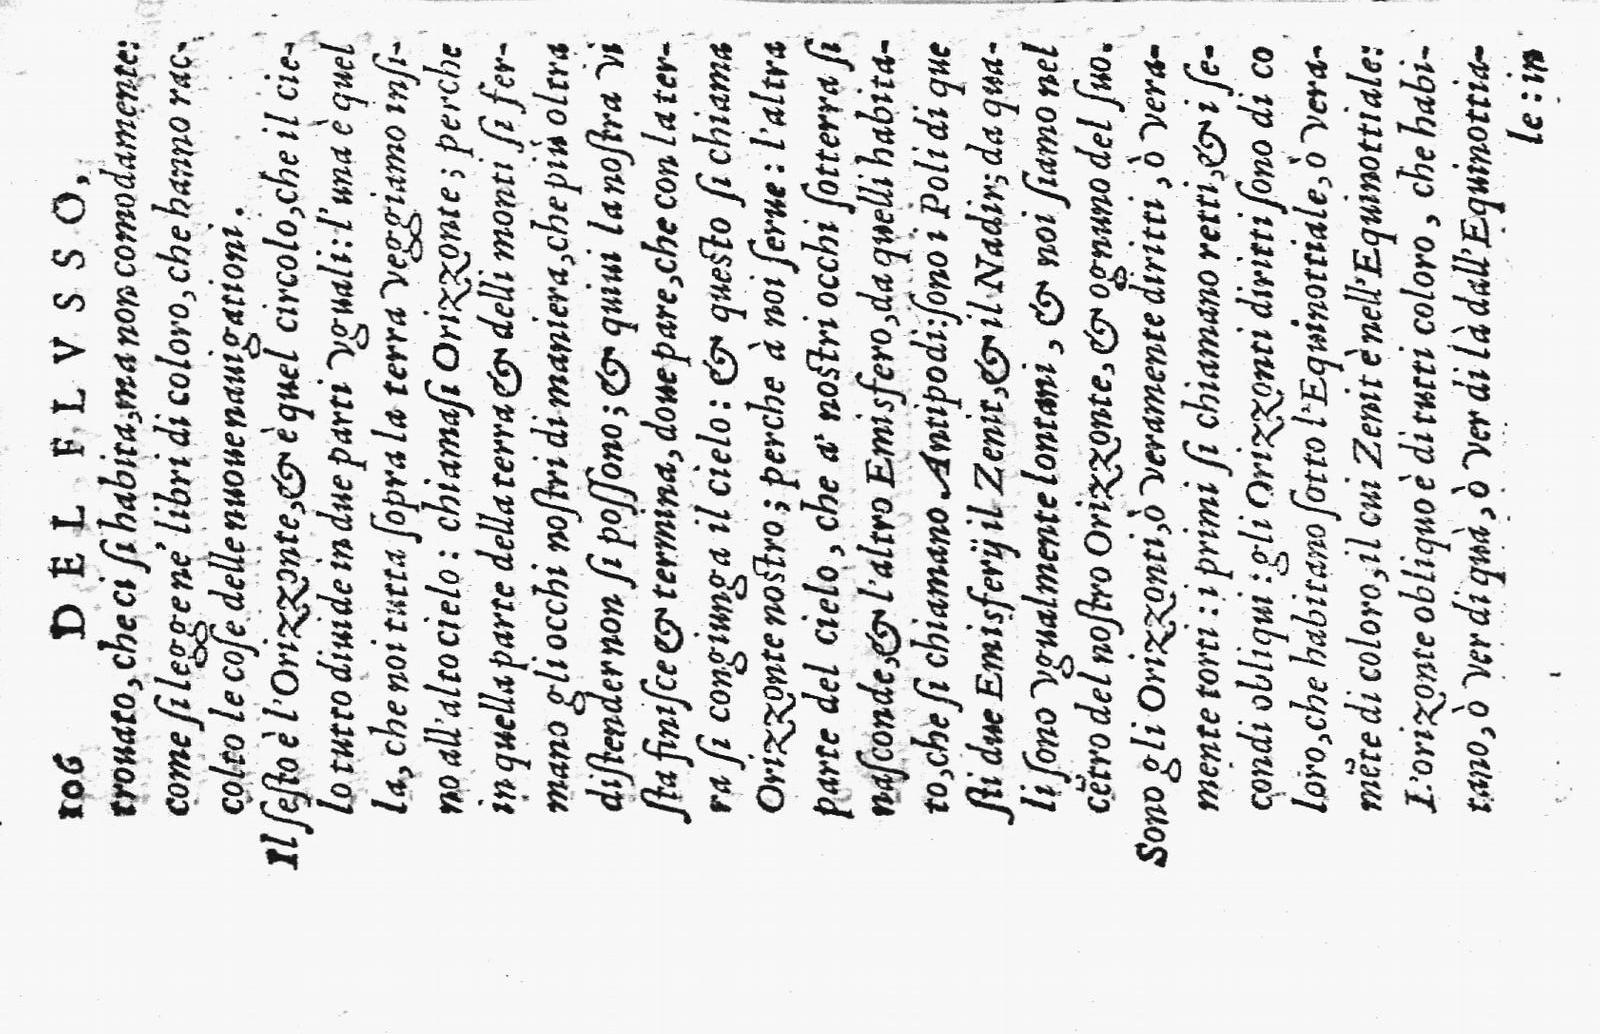 106 DEL FLVSSO,
trouato, che ci ſi habita, ma non comodamente:
come ſi legge ne' libri di coloro, che hanno rac-
colto le coſe delle nuoue nauigationi.
Il ſeſto è l'Orizzonte, & è quel circolo, che il cie-
lo tutto diuide in due parti vguali: l'una è quel
la, che noi tutta ſopra la terra veggiamo inſi-
no all'alto cielo: chiamaſi Orizzonte; perche
in quella parte della terra & delli monti ſi fer-
mano gli occhi noſtri di maniera, che più oltra
diſtender non ſi poſſono; & quiui la noſtra vi
ſta finiſce & termina, doue pare, che con la ter-
ra ſi congiunga il cielo: & queſto ſi chiama
Orizzonte noſtro; perche à noi ſerue: l'altra
parte del cielo, che a' noſtri occhi ſotterra ſi
naſconde, & l'altro Emisfero, da quelli habita-
to, che ſi chiamano Antipodi: ſono i Poli di que
ſti due Emisferij il Zenit, & il Nadir; da qua-
li ſono vgualmente lontani, & noi ſiamo nel
cẽtro del noſtro Orizzonte, & ognuno del ſuo.
Sono gli Orizzonti, ò veramente diritti, ò vera-
mente torti: i primi ſi chiamano retti, & i ſe-
condi obliqui: gli Orizzonti diritti ſono di co
loro, che habitano ſotto l'Equinottiale, ò vera-
mẽte di coloro, il cui Zenit è nell'Equinottiale:
L'orizonte obliquo è di tutti coloro, che habi-
tano, ò ver di quà, ò ver di là dall'Equinottia-
le: in